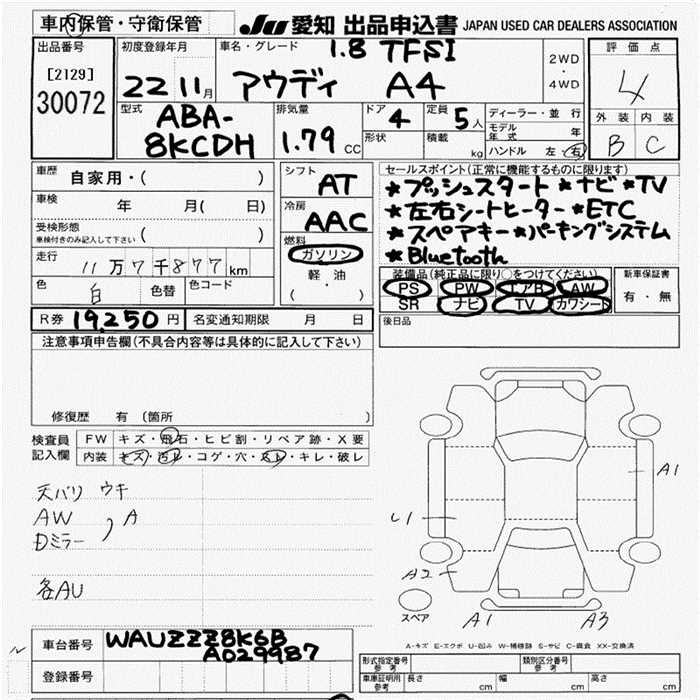 車内保管・守衛保管
JU 愛知 出品申込書 JAPAN USED CAR DEALERS ASSOCIATION
出品番号
[2129]
30072
初度登録年月
22 11月
車名・グレード
1.8 TFSI
アウディ A4
2WD
・
4WD
評価点
4
外装 内装
B C
型式
ABA-
8KCDH
排気量
1.79 CC
ドア 4
定員 5人
形状
積載 kg
ディーラー・並行
モデル年式 年
ハンドル 左・右
車歴 自家用・( )
車検 年 月( 日)
受検形態
車検付きのみ記入して下さい ( )
走行 11万7千877km
色 白 色替 色コード
シフト AT
冷房 AAC
燃料
ガソリン
軽・油
( ・ )
セールスポイント(正常に機能するものに限ります)
★プッシュスタート ★ナビ ★TV
★左右シートヒーター ★ETC
★スペアキー ★パーキングシステム
★Bluetooth
装備品(純正品に限り○をつけてください)
PS PW エアB AW
SR ナビ TV カワシート
新車保証書
有・無
R券 19,250円 名変通知期限 月 日
後日品
注意事項申告欄(不具合内容等は具体的に記入して下さい)
修復歴 有 (箇所 )
検査員
記入欄
FW キズ・飛石・ヒビ割・リペア跡・X要
内装 キズ・汚レ・コゲ・穴・スレ・キレ・破レ
天バリ ウキ
AW
Dミラー , A
各AU
A1
U1
A2
スペア
A1 A3
A-キズ E-エクボ U-凹み W-補修跡 S-サビ C-腐食 XX-交換済
車台番号 WAUZZZ8K6B
A029987
登録番号
形式指定番号
参考
類別区分番号
参考
車庫証明用
参考
長さ cm 幅 cm 高さ cm